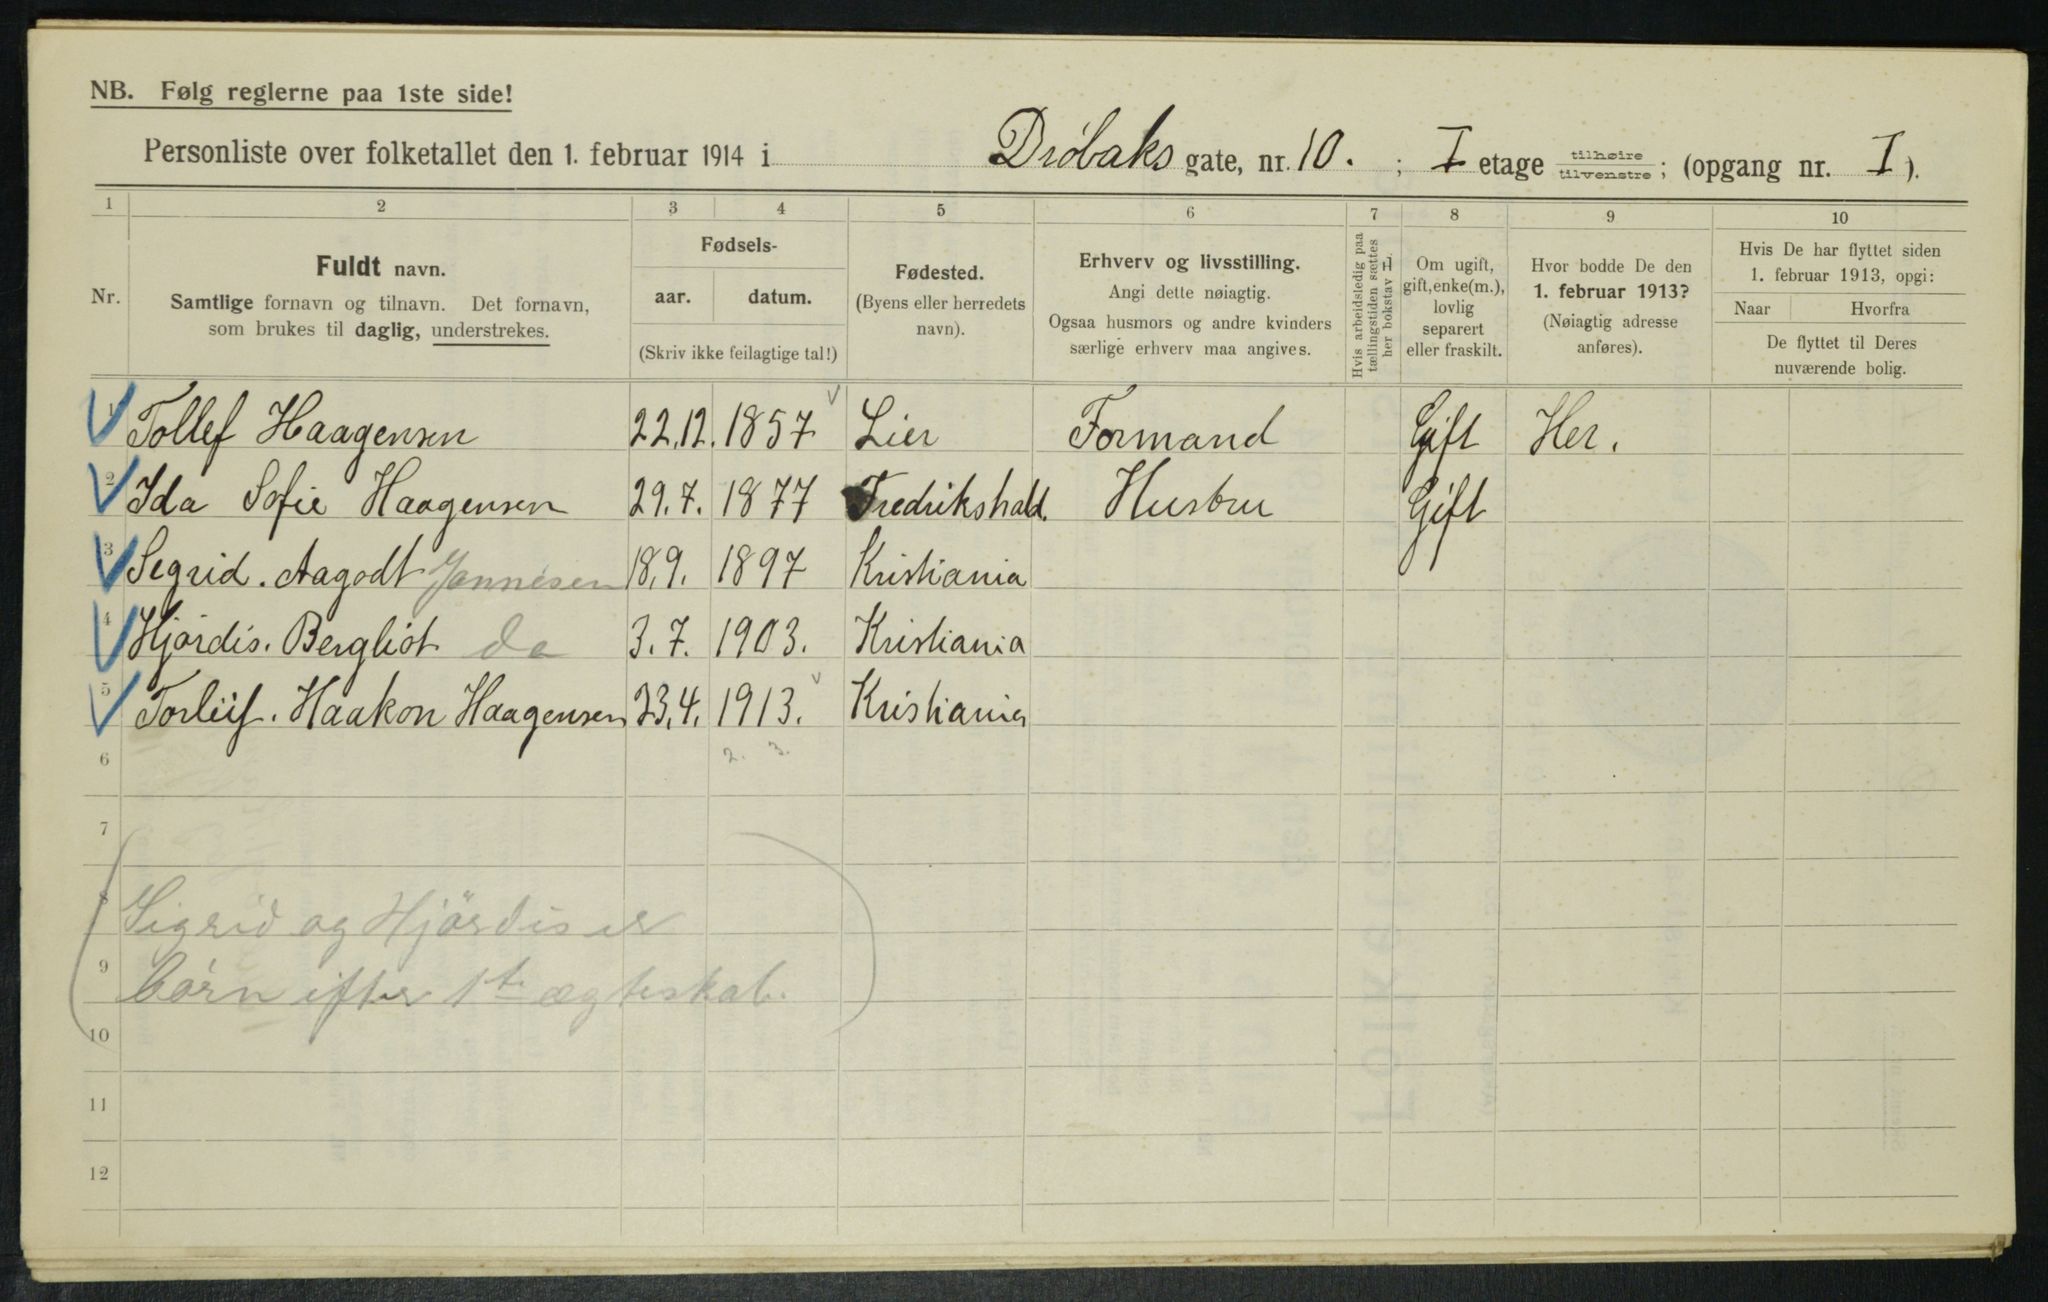 NB. Følg reglerne paa 1ste side!
Personliste over folketallet den 1. februar 1914 i Drøbaks gate, nr. 10. ; I etage tilhøire tilvenstre ; (opgang nr. I ).
1 2 3 4 5 6 7 8 9 10
Nr.
Fuldt navn.
Samtlige fornavn og tilnavn. Det fornavn,
som brukes til daglig, understrekes.
Fødsels-
aar. datum.
(Skriv ikke feilagtige tal!)
Fødested.
(Byens eller herredets
navn).
Erhverv og livsstilling.
Angi dette nøiagtig.
Ogsaa husmors og andre kvinders
særlige erhverv maa angives.
Hvis arbeidsledig paa
tællingstiden sættes
her bokstav L
Om ugift,
gift, enke(m.),
lovlig
separert
eller fraskilt.
Hvor bodde De den
1. februar 1913?
(Nøiagtig adresse
anføres).
Hvis De har flyttet siden
1. februar 1913, opgi:
Naar Hvorfra
De flyttet til Deres
nuværende bolig.
1 Tollef Haagensen 22.12. 1857 Lier Formand Gift Her.
2 Ida Sofie Haagensen 29.7. 1877 Fredrikshald. Husbru Gift
3 Segrid. Aagodt Jonnesen 18.9. 1897 Kristiania
4 Hjørdis. Bergliot do 3.7. 1903. Kristiania
5 Torleif. Haakon Haagensen 23.4. 1913. Kristiania
6 2. 3.
7
8 Sigrid og Hjördis er
9 börn efter 1te ægteskab.
10
11
12